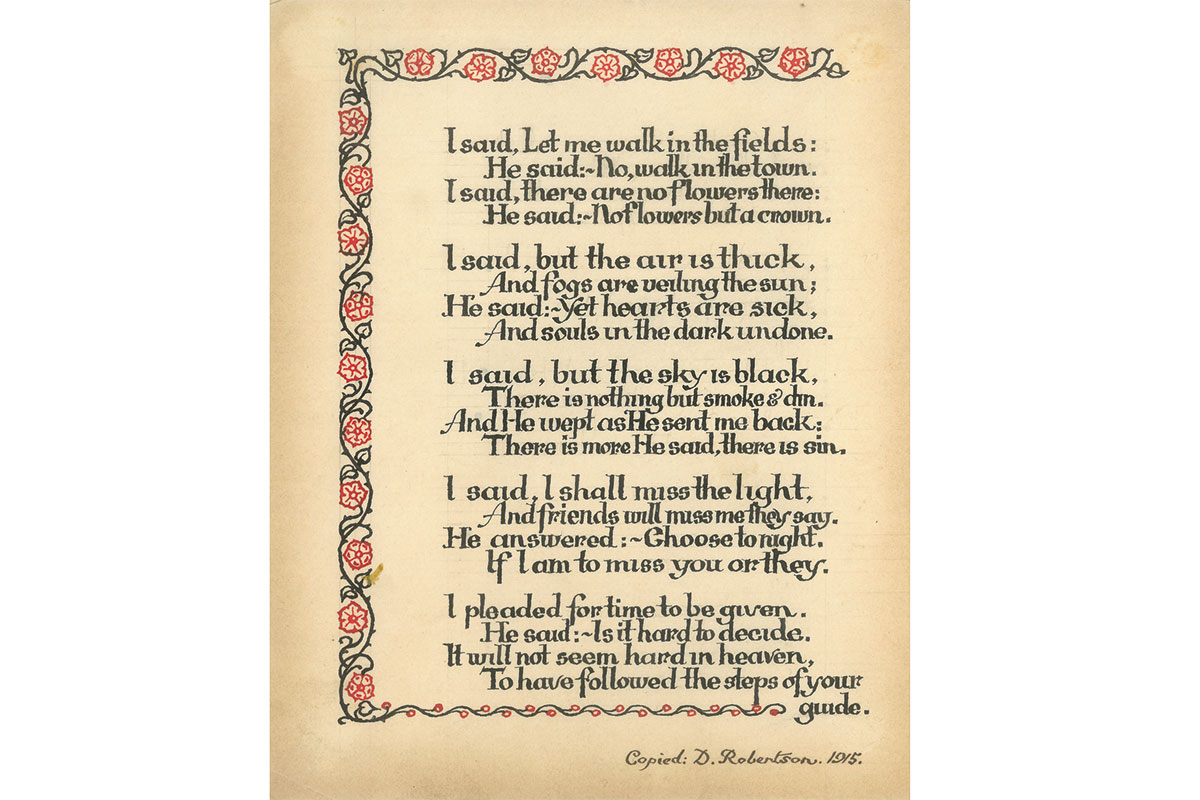 I said, Let me walk in the fields:
He said:~No, walk in the town.
I said, there are no flowers there:
He said:~No flowers but a crown.
I said, but the air is thick,
And fogs are veiling the sun;
He said:~Yet hearts are sick,
And souls in the dark undone.
I said, but the sky is black,
There is nothing but smoke & din.
And He wept as He sent me back:
There is more He said, there is sin.
I said, I shall miss the light,
And friends will miss me they say.
He answered:~Choose to night.
If I am to miss you or they.
I pleaded for time to be given.
He said:~Is it hard to decide.
It will not seem hard in heaven,
To have followed the steps of your
guide.
Copied: D. Robertson. 1915.